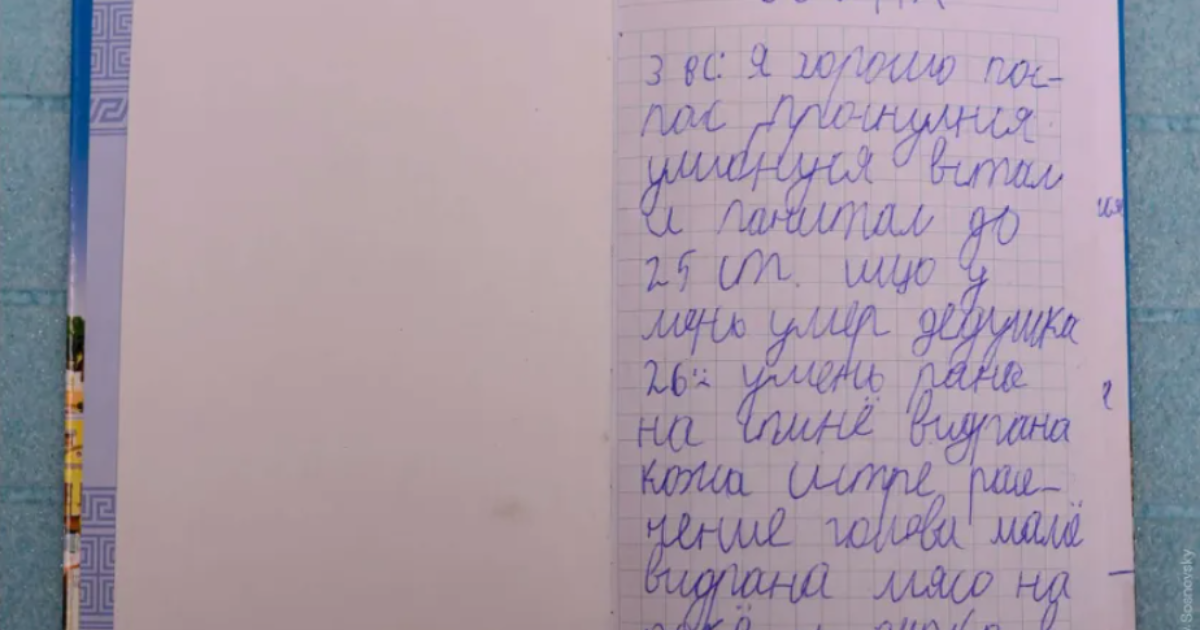 З вс: Я хорошо пос-
пас прогнулися
умионуия встал
и паичитал до
25 ст. ищо у
мень умер дедушка
26:: умень рана
на спинё видрана
кожа систре рас-
чение голова малё
видрана мясо на
Sosnovsky